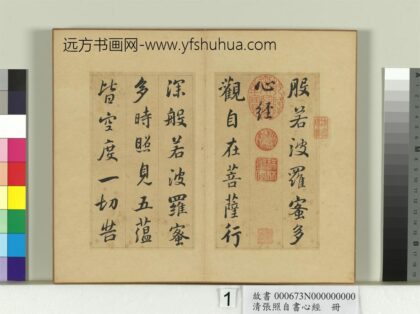 远方书画网-www.yfshuhua.com
般若波羅蜜多
心經
觀自在菩薩行
深般若波羅蜜
多時照見五蘊
皆空度一切苦
1
故書 000673N000000000
清張照自書心經 冊